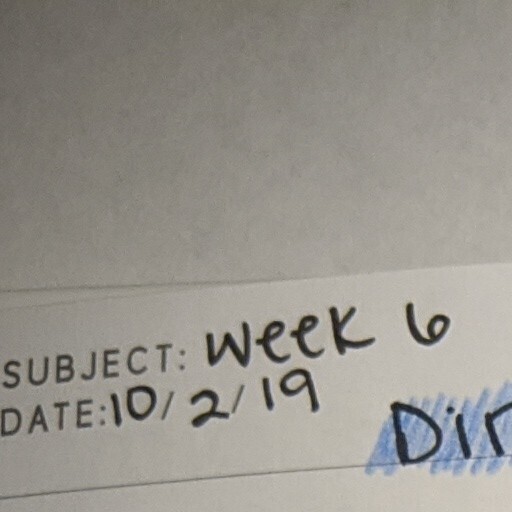 SUBJECT: Week 6
DATE: 10/2/19
Dir